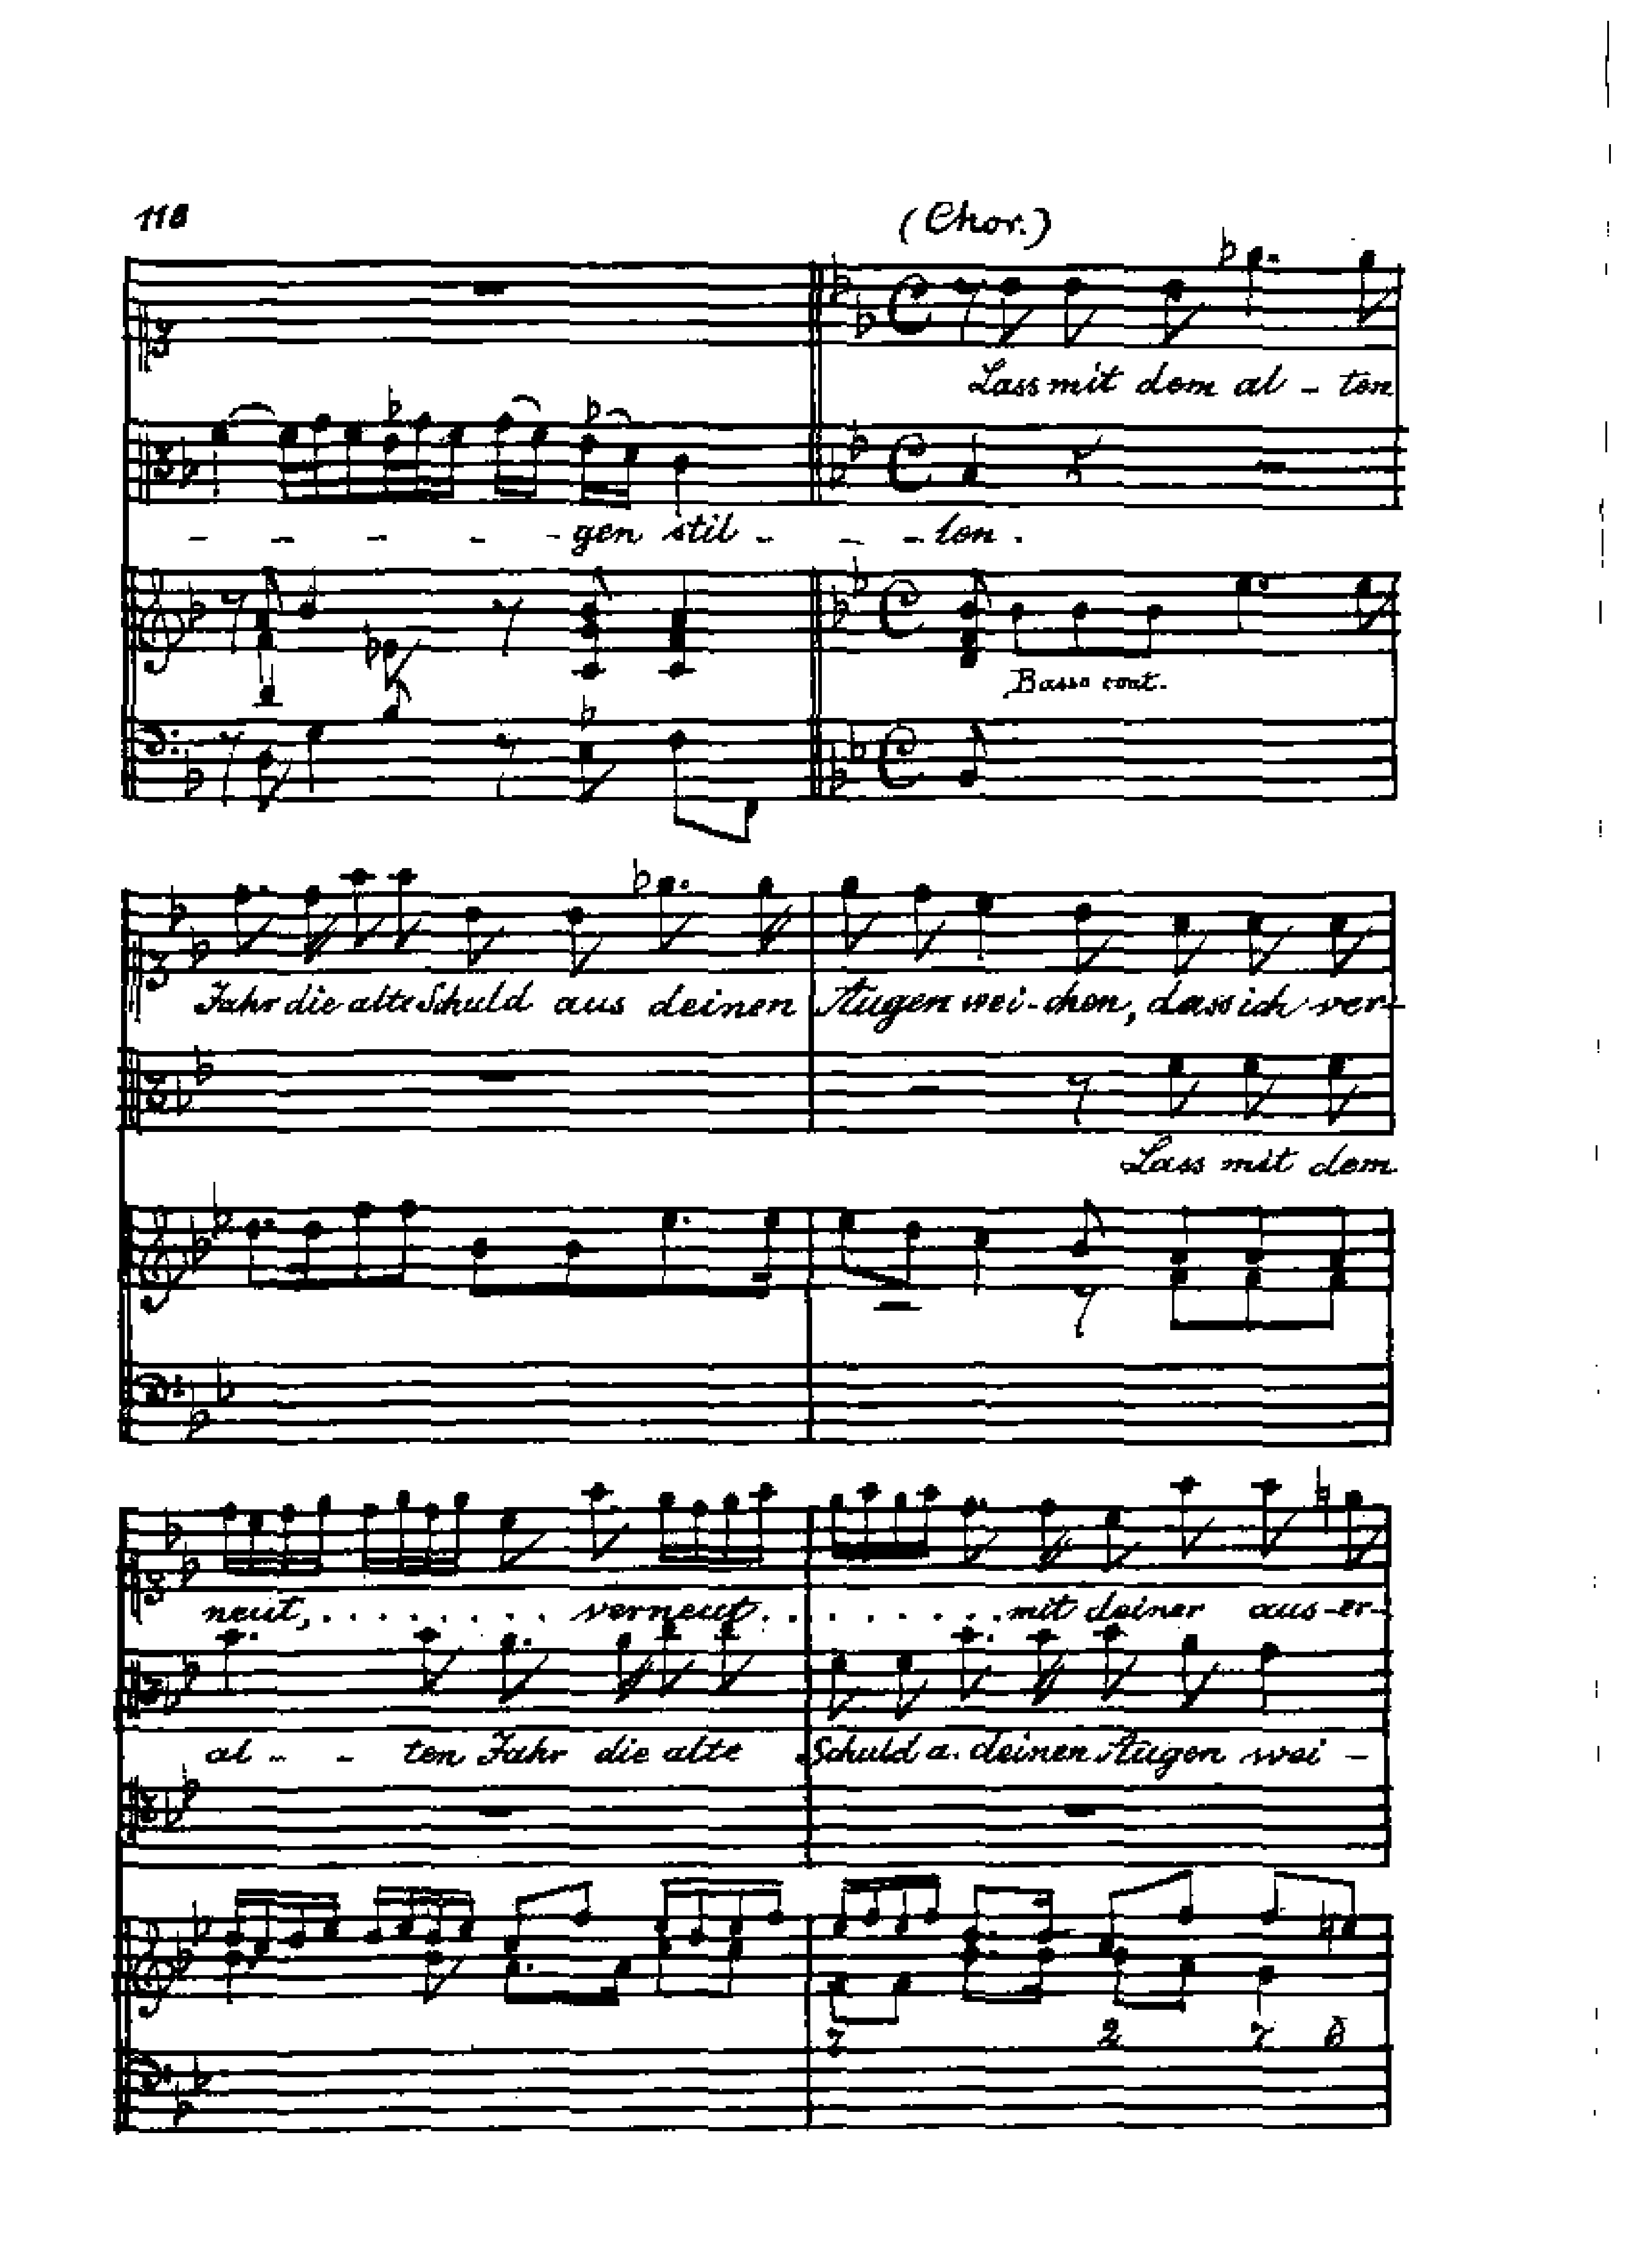 118
(Chor.)
Lass mit dem al - ten
- - - - - gen stil - - - len.
Basso cont.
Jahr die alte Schuld aus deinen Augen wei-chen, dass ich ver-
Lass mit dem
neut, . . . . . . . . verneut . . . . . . . . . mit deiner aus-er-
al - - - ten Jahr die alte Schuld a. deinen Augen wei -
7 2 7 6